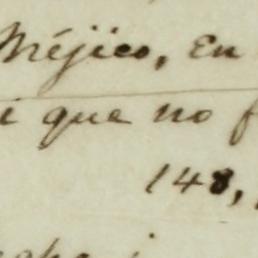 Méjico, En
i que no f
148,